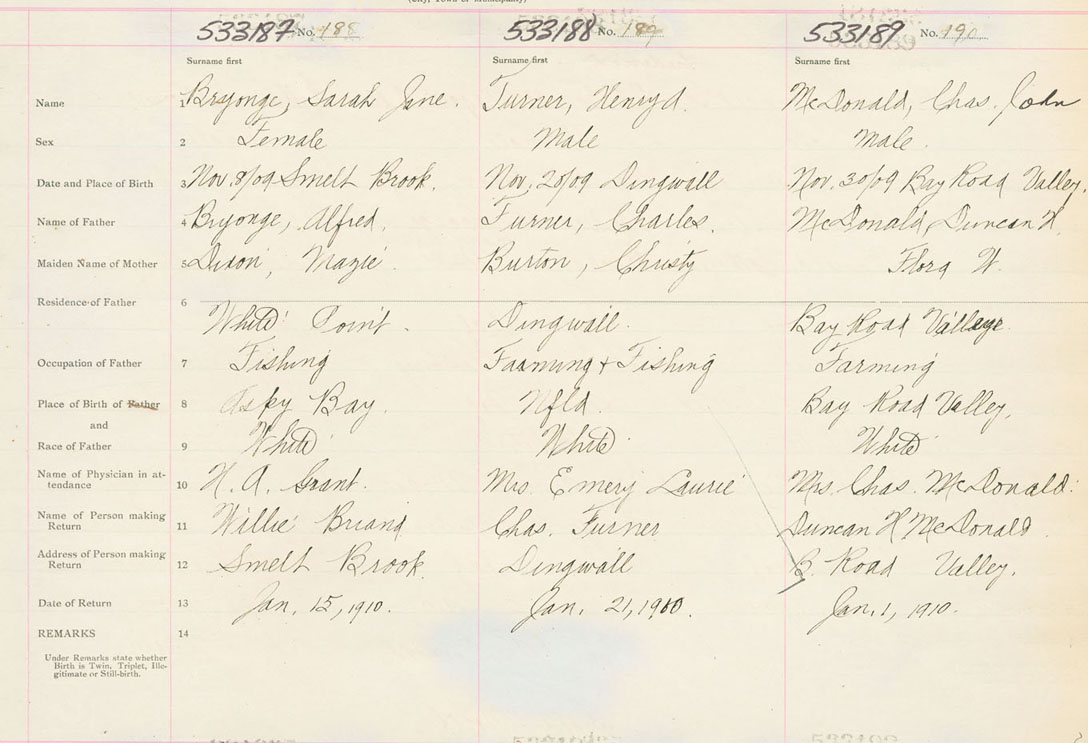 (City, Town or Municipality)
533187 No. 188 533188 No. 189 533189 No. 190
Surname first Surname first Surname first
Name 1 Bryonge, Sarah Jane. Turner, Henry A. McDonald, Chas. John
Sex 2 Female Male Male.
Date and Place of Birth 3 Nov. 8/09 Smelt Brook. Nov. 20/09 Dingwall Nov. 30/09 Bay Road Valley.
Name of Father 4 Bryonge, Alfred. Turner, Charles. McDonald, Duncan H.
Maiden Name of Mother 5 Dixon, Mazie. Burton, Christy Flora
Residence of Father 6
White Point. Dingwall. Bay Road Valley
Occupation of Father 7 Fishing Farming + Fishing Farming
Place of Birth of Father 8 Aspy Bay. Nfld. Bay Road Valley.
and
Race of Father 9 White White White
Name of Physician in at-
tendance 10 H. A. Grant. Mrs. Emery Laurie Mrs. Chas. McDonald.
Name of Person making
Return 11 Willie Briand Chas. Turner Duncan H McDonald
Address of Person making
Return 12 Smelt Brook. Dingwall B. Road Valley.
Date of Return 13 Jan. 15, 1910. Jan. 21, 1910. Jan. 1, 1910.
REMARKS 14
Under Remarks state whether
Birth is Twin, Triplet, Ille-
gitimate or Still-birth.